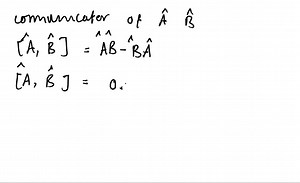 communicator of Â B̂
[Â, B̂] = ÂB̂-B̂Â
[Â, B̂] = 0.